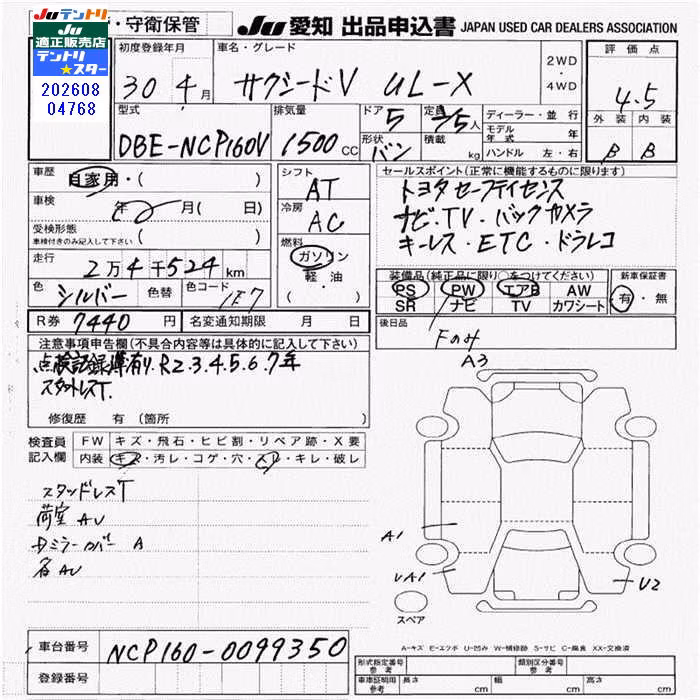 Juテントリ
Ju
適正販売店
テントリ
★スター
202608
04768
・守衛保管
Ju 愛知 出品申込書 JAPAN USED CAR DEALERS ASSOCIATION
初度登録年月
30 4月
車名・グレード
サクシードV UL-X
2WD
・
4WD
評価点
4.5
外装 内装
B B
型式
DBE-NCP160V
排気量
1500 CC
ドア 5
定員 2/5人
形状 バン
積載 kg
ディーラー・並行
モデル年式
ハンドル 左・右
車歴 自家用・( )
車検 年 月( 日)
受検形態
車検付きのみ記入して下さい ( )
走行 2万4千524km
色 シルバー 色替 色コード 1E7
シフト AT
冷房 AC
燃料
ガソリン
軽・油
セールスポイント(正常に機能するものに限ります)
トヨタセーフティセンス
ナビ・TV・バックカメラ
キーレス・ETC・ドラレコ
装備品(純正品に限り○をつけてください)
PS PW エアB AW
SR ナビ TV カワシート
新車保証書
有・無
R券 7440円 名変通知期限 月 日
後日品
Fのみ
注意事項申告欄(不具合内容等は具体的に記入して下さい)
点検記録簿有り.R2.3.4.5.6.7年
スタットレスT.
修復歴 有(箇所 )
検査員
記入欄
FW キズ・飛石・ヒビ割・リペア跡・X要
内装 キズ・汚レ・コゲ・穴・スレ・キレ・破レ
スタッドレスT
荷室 AU
ドミラーカバー A
各AU
A3
A1
UA1
U2
スペア
A-キズ E-エクボ U-凹み W-補修跡 S-サビ C-腐食 XX-交換済
車台番号 NCP160-0099350
登録番号
形式指定番号
参考
類別区分番号
参考
車庫証明用
参考
長さ cm 幅 cm 高さ cm